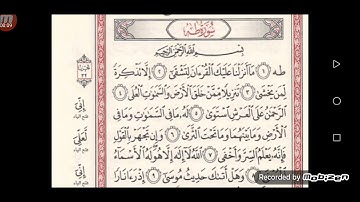 سُورَةُ طه
بِسْمِ اللَّهِ الرَّحْمَٰنِ الرَّحِيمِ
طه ١ مَا أَنزَلْنَا عَلَيْكَ الْقُرْآنَ لِتَشْقَىٰ ٢ إِلَّا تَذْكِرَةً
لِّمَن يَخْشَىٰ ٣ تَنزِيلًا مِّمَّنْ خَلَقَ الْأَرْضَ وَالسَّمَاوَاتِ الْعُلَى ٤
الرَّحْمَٰنُ عَلَى الْعَرْشِ اسْتَوَىٰ ٥ لَهُ مَا فِي السَّمَاوَاتِ وَمَا فِي
الْأَرْضِ وَمَا بَيْنَهُمَا وَمَا تَحْتَ الثَّرَىٰ ٦ وَإِن تَجْهَرْ بِالْقَوْلِ
فَإِنَّهُ يَعْلَمُ السِّرَّ وَأَخْفَى ٧ اللَّهُ لَا إِلَٰهَ إِلَّا هُوَ لَهُ الْأَسْمَاءُ
وَهَلْ أَتَاكَ حَدِيثُ مُوسَىٰ ٩ إِذْ رَأَىٰ نَارًا
إِنِّيَ
فتح الياء
لَعَلِّيَ
فتح الياء
إِنِّيَ
فتح الياء
Recorded by Mobizen